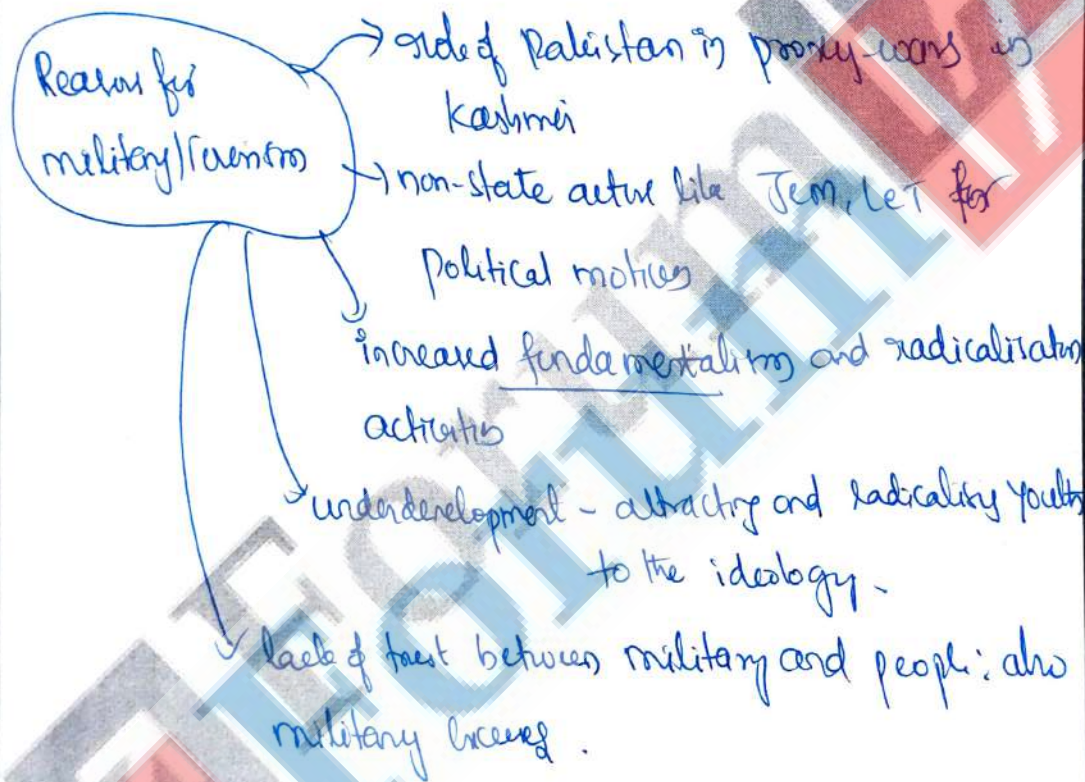 Reason for
military/Terrorism
→ role of Pakistan in proxy-wars in
Kashmir
→ non-state active like JeM, LeT for
political motives
increased fundamentalism and radicalisation
activities
underdevelopment - attracting and radicalising youths
to the ideology.
lack of trust between military and people; also
military
Forum
Forum